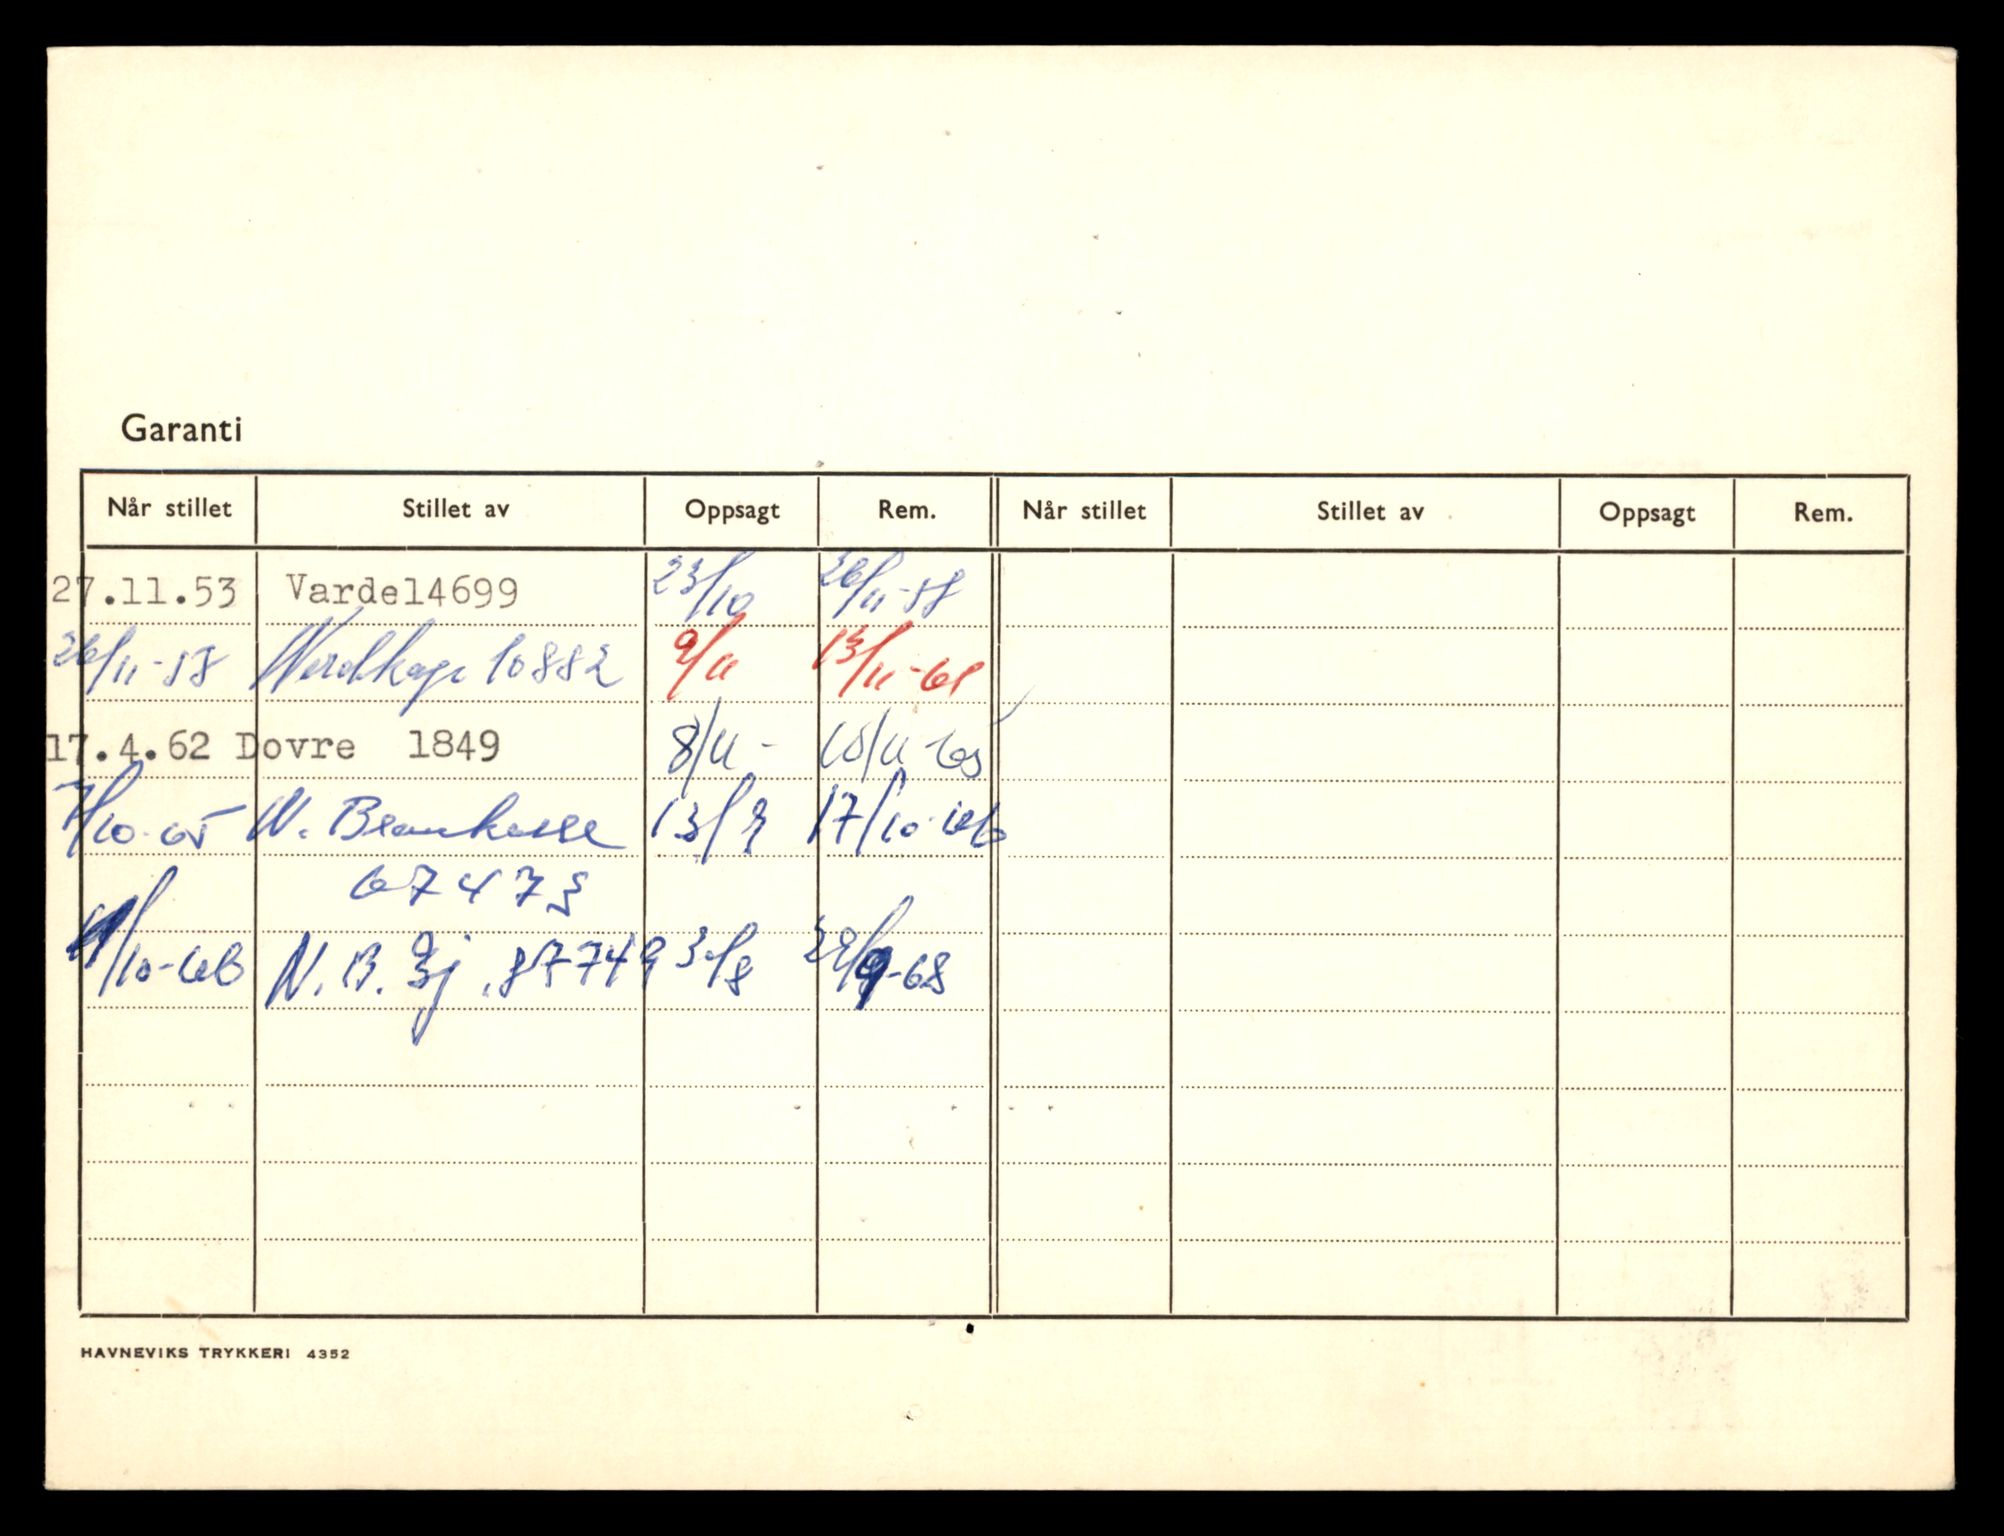 Garanti
Når stillet Stillet av Oppsagt Rem. Når stillet Stillet av Oppsagt Rem.
27.11.53 Varde14699 23/10 26/11-58
26/11-58 10882 9/11 13/11-61
17.4.62 Dovre 1849 8/11 - 10/11-65
7/10-65 N. Brankasse 13/9 17/10-66
67473
/10-66 N.B. 87749 3/8 29/9-68
HAVNEVIKS TRYKKERI 4352